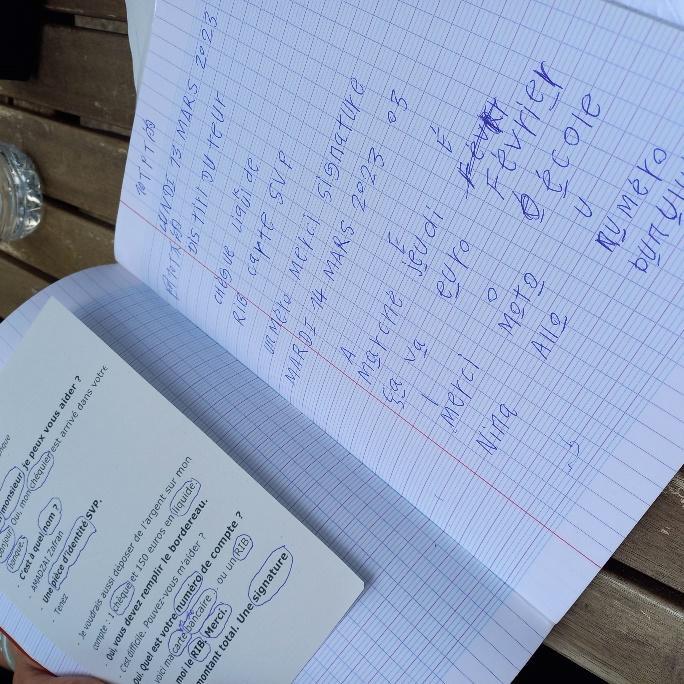 LUNDI 13 MARS 2023
DISTRIBUTEUR
chégue liqui de
RIB carte SVP
numéro Mérci signature
MARDI 14 MARS 2023 03
A
marche
ça va
I
Merci
Nina
E
jeudi
euro
O
Moto
Allo
É
Février
école
U
Numéro
monsieur, je peux vous aider ?
Oui, mon chéquier est arrivé dans votre
banque.
- C'est à quel nom ?
- AMADZAI Zafran
- Une pièce d'identité SVP.
- Tenez
- Je voudrais aussi déposer de l'argent sur mon
compte : 1 chèque et 150 euros en liquide
- Oui, vous devez remplir le bordereau.
- C'est difficile. Pouvez-vous m'aider ?
- Oui. Quel est votre numéro de compte ?
voici ma carte bancaire ou un RIB
moi le RIB, Merci.
montant total. Une signature